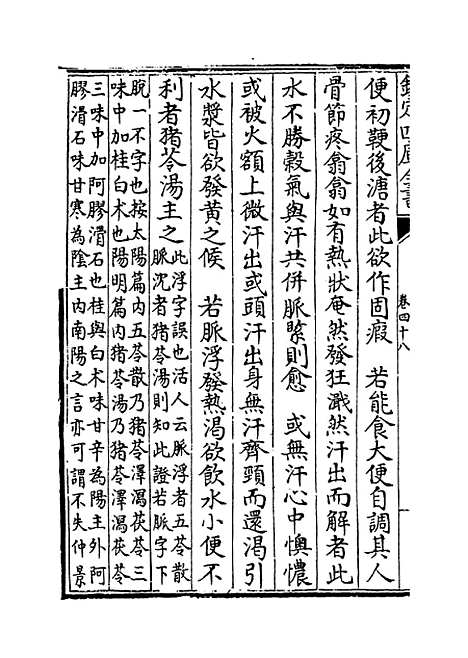 欽定四庫全書
卷四十八
便初鞕後溏者此欲作固瘕　若能食大便自調其人
骨節疼翕翕如有熱狀奄然發狂濈然汗出而解者此
水不勝穀氣與汗共併脈緊則愈　或無汗心中懊憹
或被火額上微汗出或頭汗出身無汗齊頸而還渴引
水漿皆欲發黃之候　若脈浮發熱渴欲飲水小便不
利者猪苓湯主之
此浮字誤也活人云脈浮者五苓散
脈沉者猪苓湯則知此證若脈字下
脫一不字也按太陽篇內五苓散乃猪苓澤瀉茯苓三
味中加桂白术也陽明篇內猪苓湯乃猪苓澤瀉茯苓
三味中加阿膠滑石也桂與白术味甘辛為陽主外阿
膠滑石味甘寒為陰主內南陽之言亦可謂不失仲景